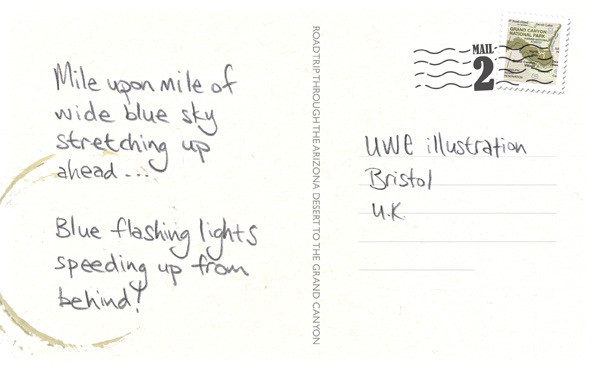 Mile upon mile of
wide blue sky
stretching up
ahead....
Blue flashing lights
speeding up from
behind!
ROAD TRIP THROUGH THE ARIZONA DESERT TO THE GRAND CANYON
MAIL
2
GRAND CANYON
NATIONAL PARK
UWE illustration
Bristol
U.K.